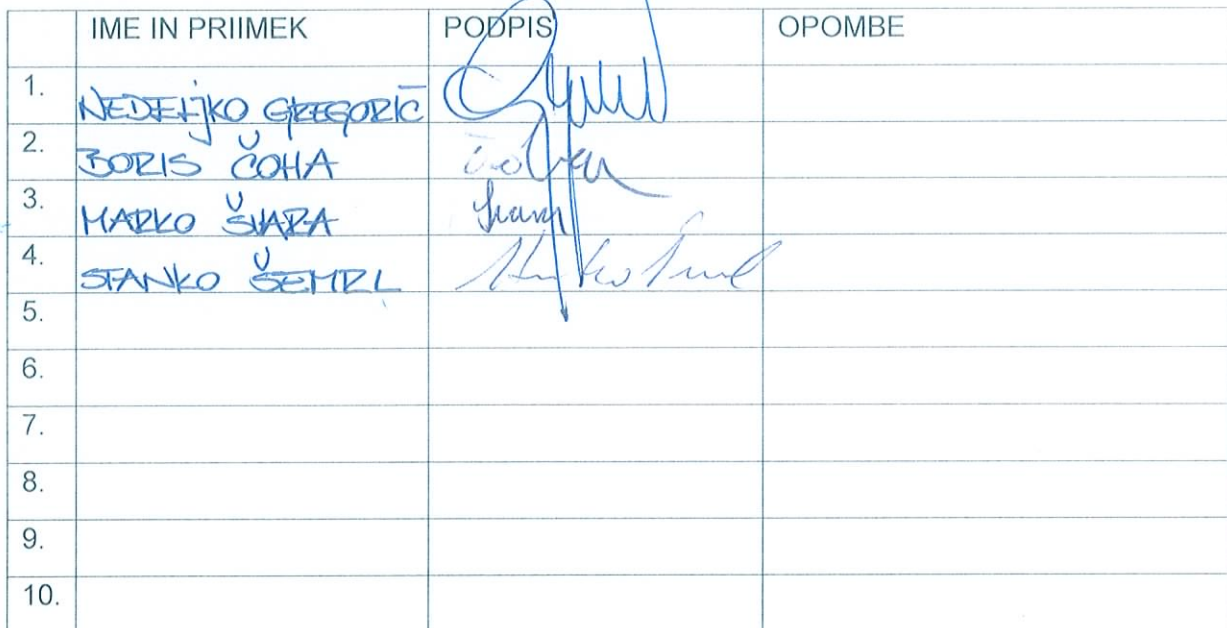 IME IN PRIIMEK PODPIS OPOMBE
1. NEDELJKO GREGORIČ
2. BORIS ČOHA
3. MARKO ŠVARA
4. STANKO ŠEMRL
5.
6.
7.
8.
9.
10.